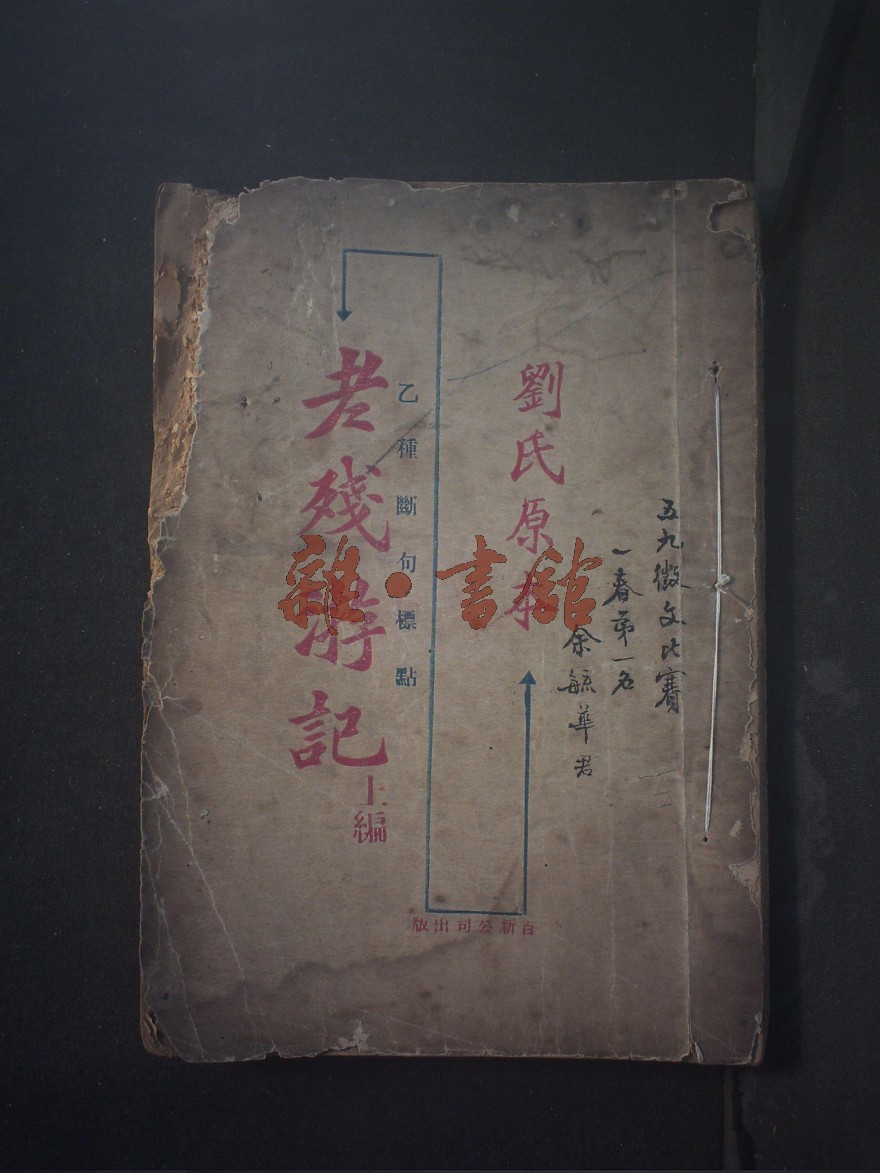 五九徵文比賽
一春第一名
余毓華君
劉氏原本
乙種斷句標點
老殘游記
上編
百新公司出版
雜·書館